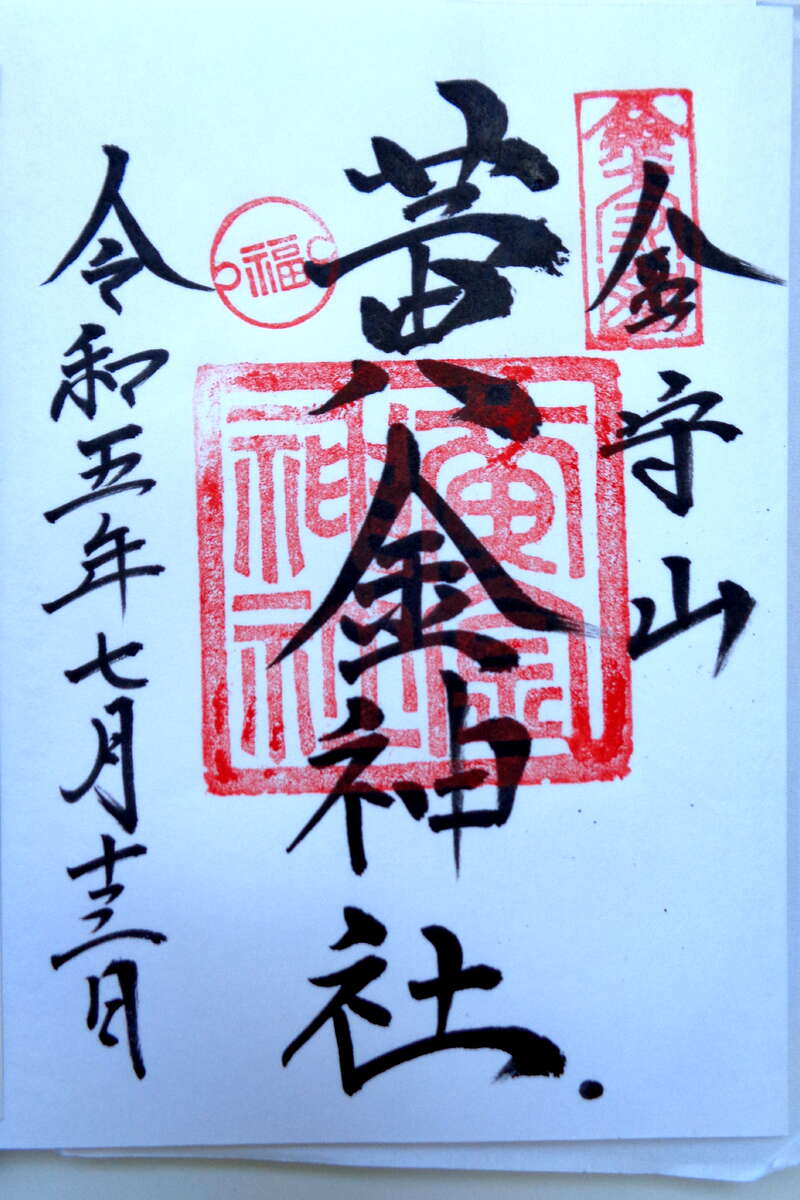 金守山
黄金神社
黄金神社
福
令和五年七月十三日